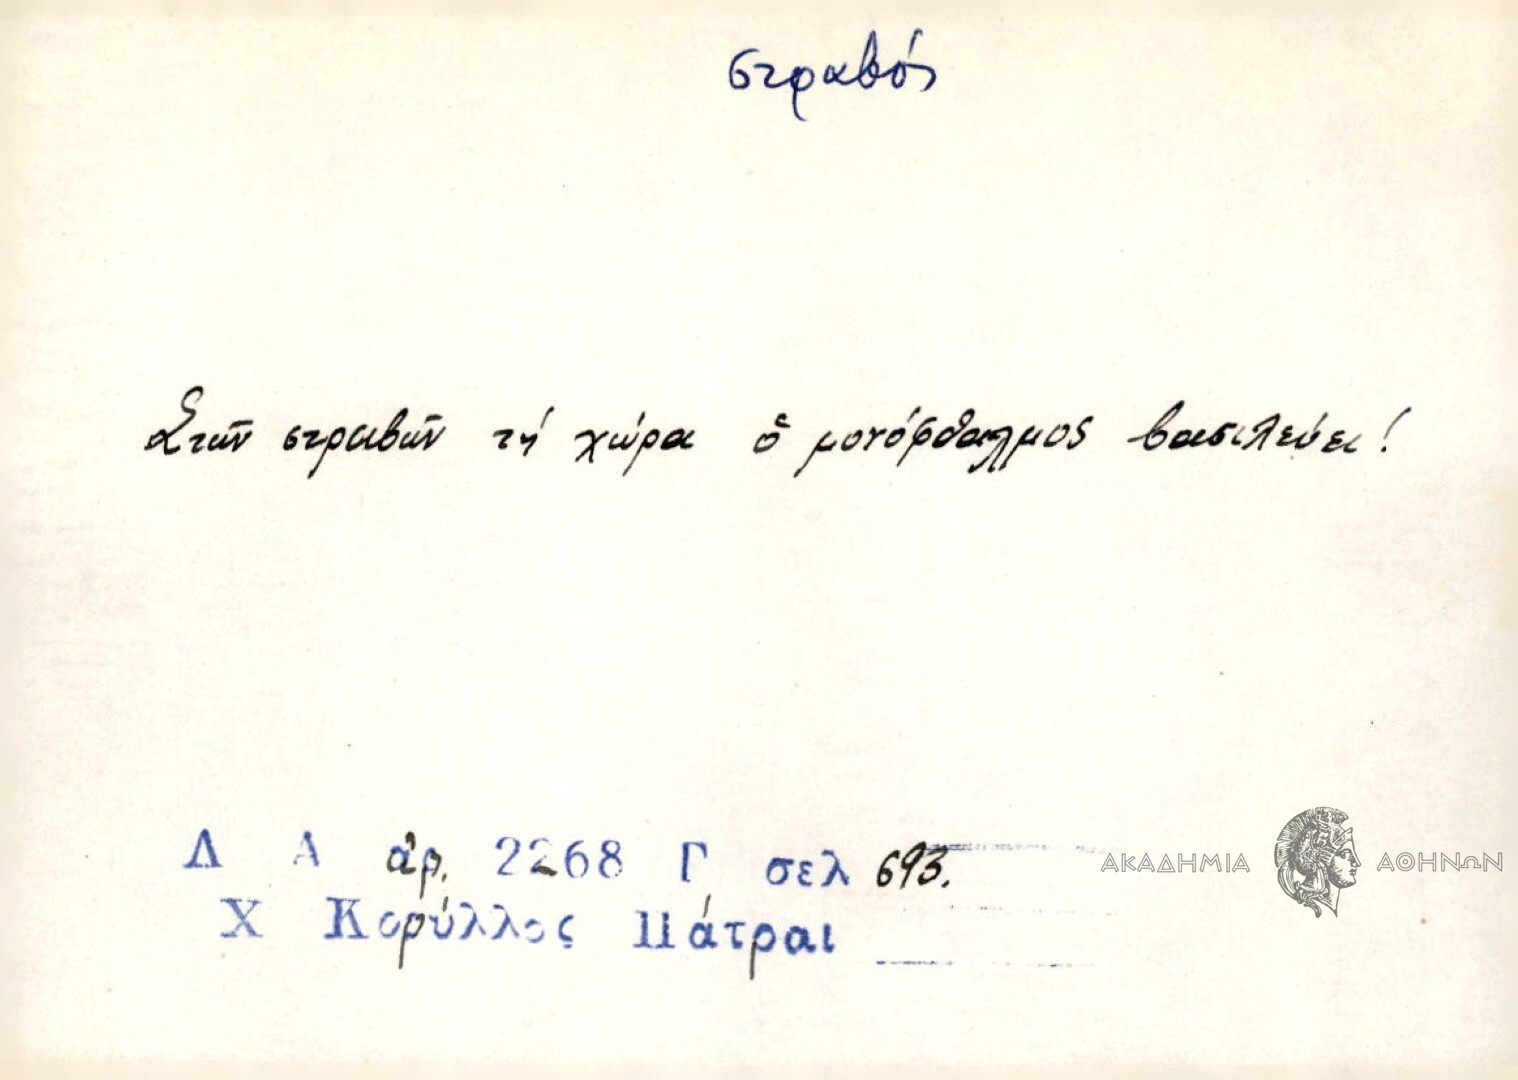 στραβός
Στῶν στραβῶν τή χώρα ὁ μονόφθαλμος βασιλεύει!
Λ Α ἀρ. 2268 Γ σελ 693.
ΑΚΑΔΗΜΙΑ ΑΘΗΝΩΝ
Χ Κορύλλος Πάτραι